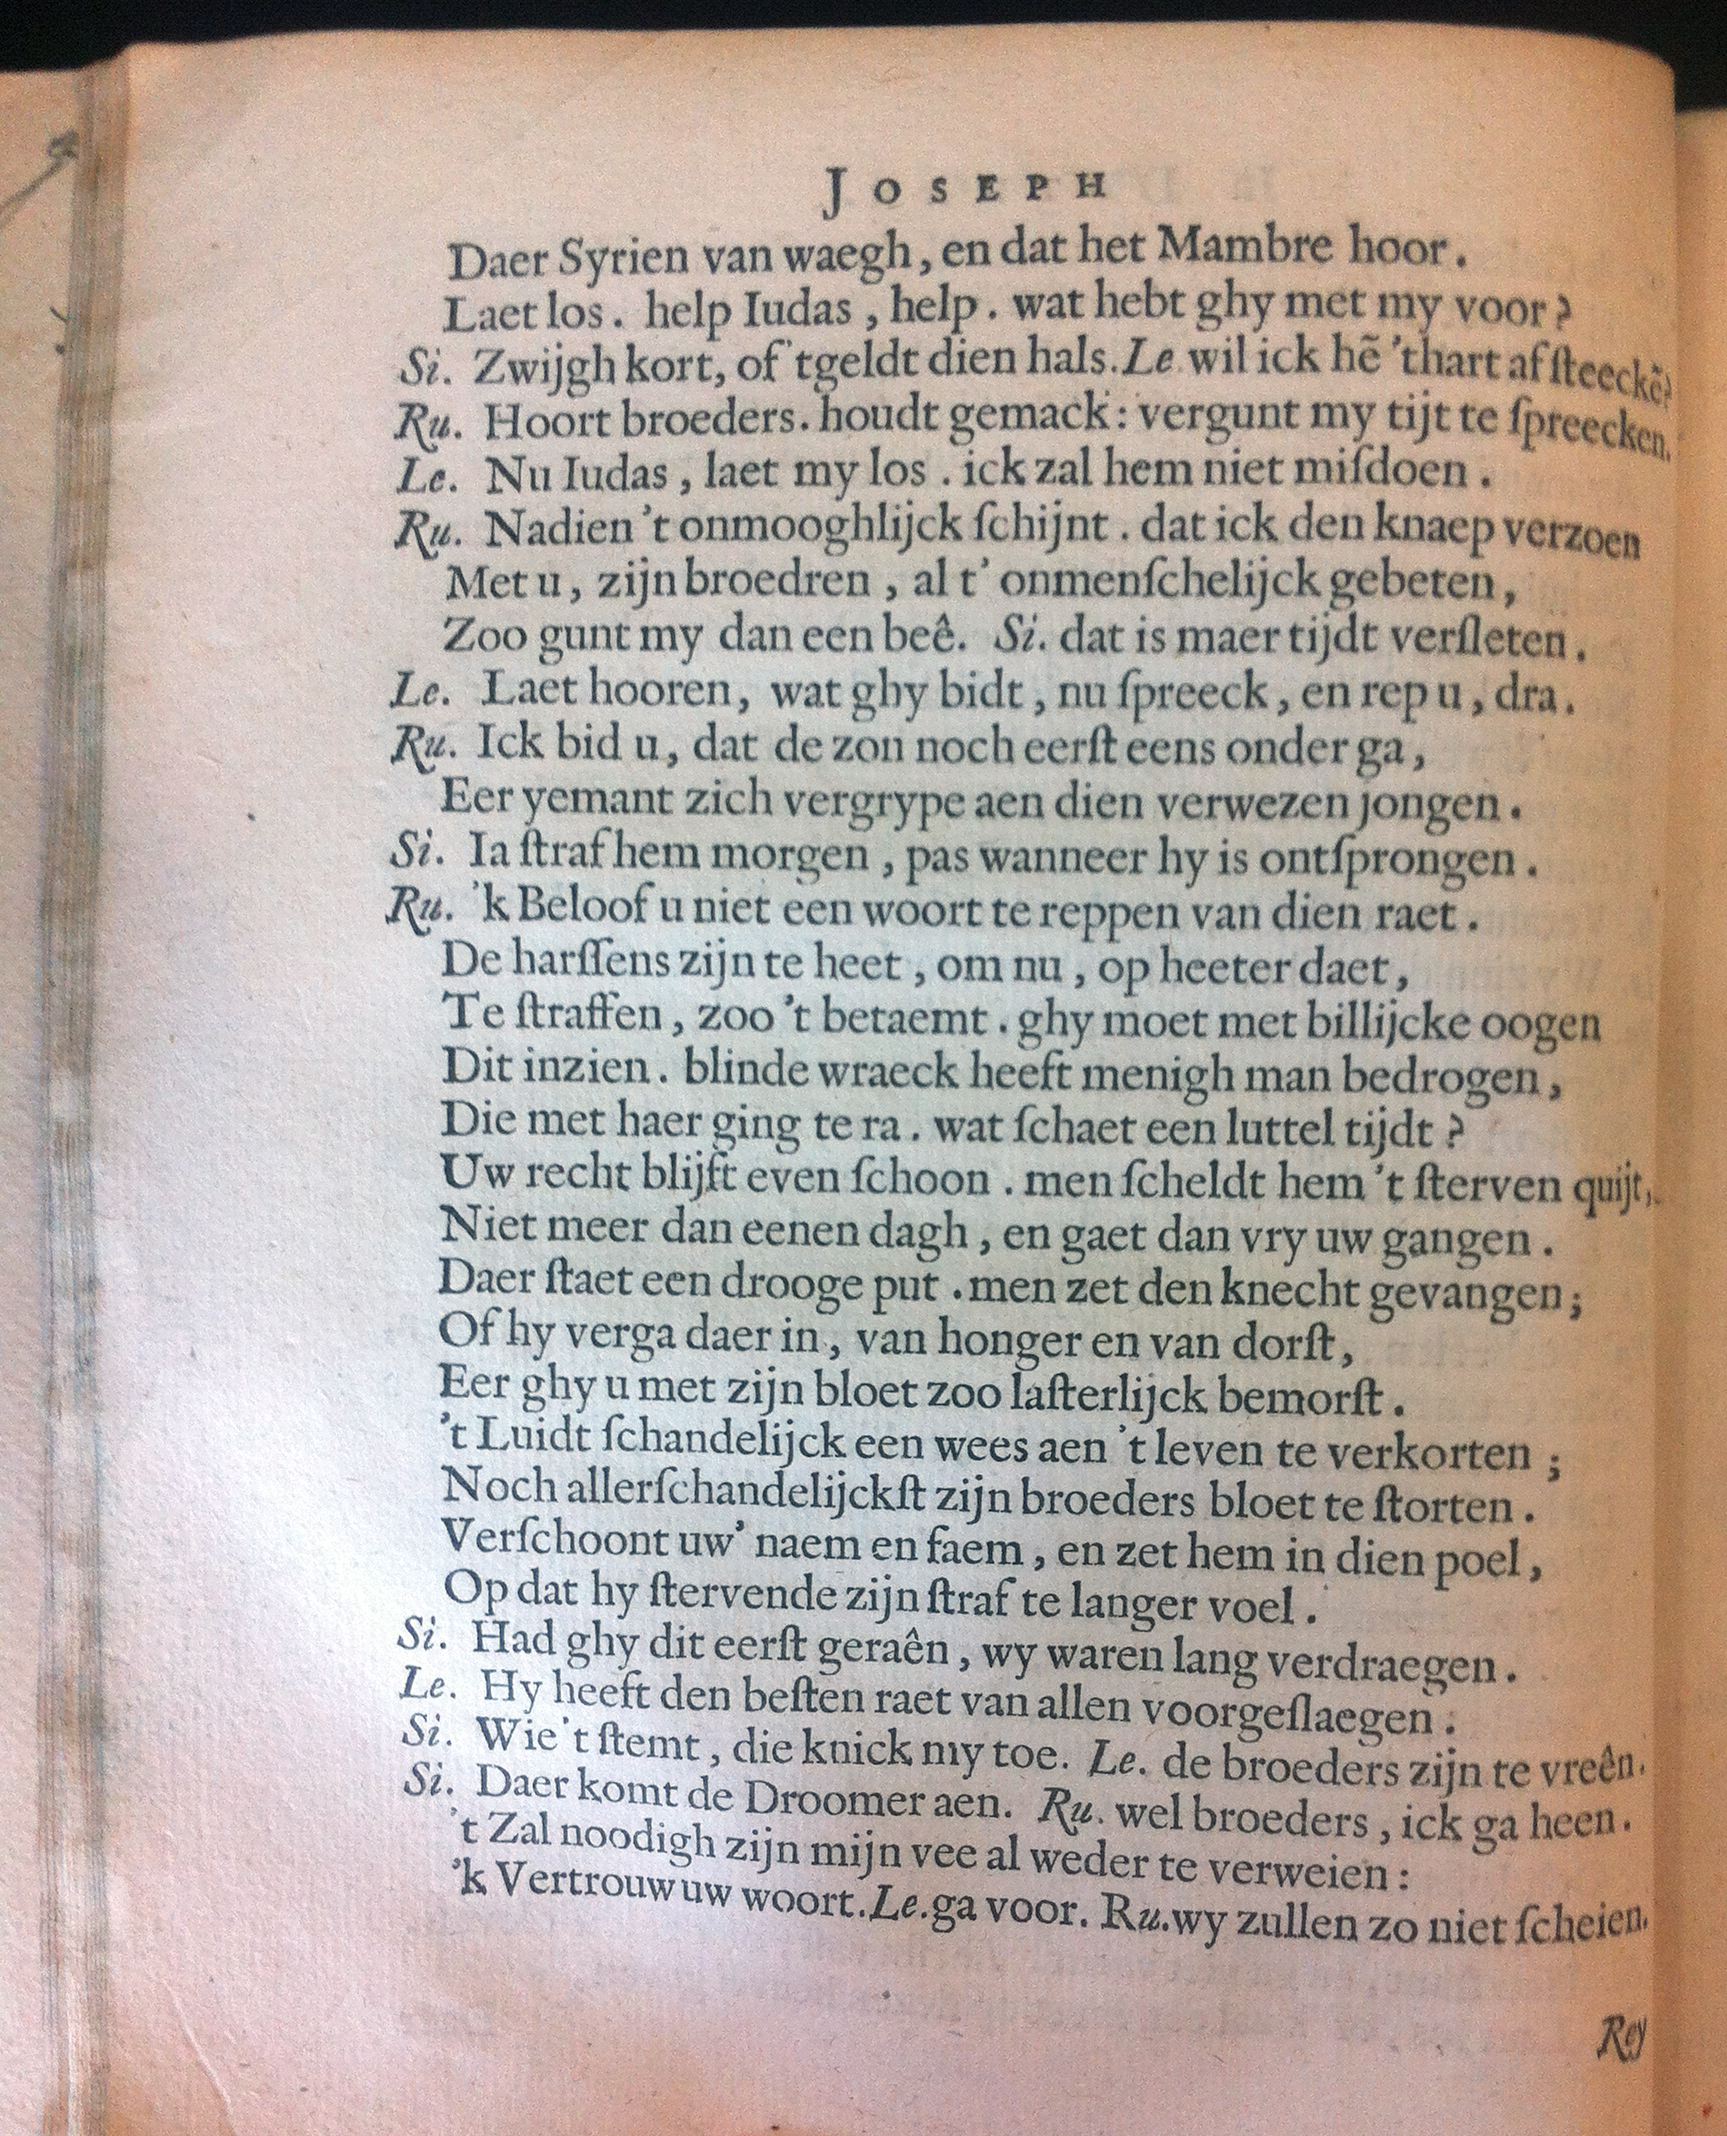 JOSEPH
Daer Syrien van waegh, en dat het Mambre hoor.
Laet los. help Iudas, help. wat hebt ghy met my voor?
Si. Zwijgh kort, of 'tgeldt dien hals. Le. wil ick hẽ 'thart af ſteeckẽ?
Ru. Hoort broeders. houdt gemack: vergunt my tijt te ſpreecken.
Le. Nu Iudas, laet my los. ick zal hem niet miſdoen.
Ru. Nadien 't onmooghlijck ſchijnt. dat ick den knaep verzoen
Met u, zijn broedren, al t' onmenſchelijck gebeten,
Zoo gunt my dan een beê. Si. dat is maer tijdt verſleten.
Le. Laet hooren, wat ghy bidt, nu ſpreeck, en rep u, dra.
Ru. Ick bid u, dat de zon noch eerſt eens onder ga,
Eer yemant zich vergrype aen dien verwezen jongen.
Si. Ia ſtraf hem morgen, pas wanneer hy is ontſprongen.
Ru. 'k Beloof u niet een woort te reppen van dien raet.
De harſſens zijn te heet, om nu, op heeter daet,
Te ſtraffen, zoo 't betaemt. ghy moet met billijcke oogen
Dit inzien. blinde wraeck heeft menigh man bedrogen,
Die met haer ging te ra. wat ſchaet een luttel tijdt?
Uw recht blijft even ſchoon. men ſcheldt hem 't ſterven quijt,
Niet meer dan eenen dagh, en gaet dan vry uw gangen.
Daer ſtaet een drooge put. men zet den knecht gevangen;
Of hy verga daer in, van honger en van dorſt,
Eer ghy u met zijn bloet zoo laſterlijck bemorſt.
't Luidt ſchandelijck een wees aen 't leven te verkorten;
Noch allerſchandelijckſt zijn broeders bloet te ſtorten.
Verſchoont uw' naem en faem, en zet hem in dien poel,
Op dat hy ſtervende zijn ſtraf te langer voel.
Si. Had ghy dit eerſt geraên, wy waren lang verdraegen.
Le. Hy heeft den beſten raet van allen voorgeſlaegen.
Si. Wie 't ſtemt, die knick my toe. Le. de broeders zijn te vreên.
Si. Daer komt de Droomer aen. Ru. wel broeders, ick ga heen.
't Zal noodigh zijn mijn vee al weder te verweien:
'k Vertrouw uw woort. Le. ga voor. Ru. wy zullen zo niet ſcheien.
Rey